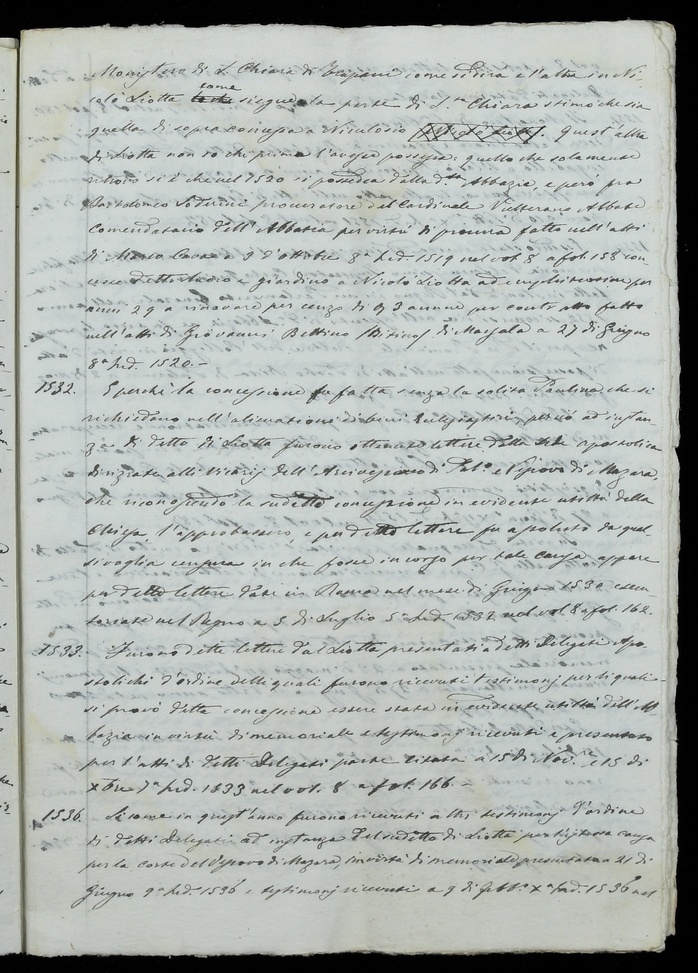 Monistero di S. Chiara di Trapani come si dirà e l'altra in Ni-
colò Liotta come siegue la parte di S.ta Chiara stimo che sia
quella di sopra concessa a Niculosio Quest'altra
di Liotta non so chi prima l'avesse possessa: quello che solamente
ritrovo si è che nel 1520 si possedea dalla d.tta Abbazia, e però fra
Bartolomeo procuratore del Cardinale Abbate
Comendatario dell'Abbazia per virtù di procura fatta nell'atti
di Marco a 9 d'ottobre 8ª Ind. 1519 nel vol. 8 a fol. 158 con-
cesse detto e giardino a Nicolò Liotta ad per
anni 29 a rinovare per cenzo di 93 annui per contratto fatto
nell'atti di Giovanni Bettino di Marsala a 27 di Giugno
8ª Ind. 1520.-
1532. E perchè la concessione fu fatta senza la solita Paulina che si
richiedano nell'alienazione di beni però ad instan-
za di detto di Liotta furono ottenute lettere della sede apostolica
dirizzate alli Vicarij dell'Arcivescovo di Pal.o e Vescovo di Mazara,
che riconoscendo la sudetta concessione in evidente utilità della
Chiesa, l'approbassero, e per dette lettere fu assoluto da qual-
sivoglia censura in che fosse incorso per tale causa appare
per dette lettere date in Roma nel mese di Giugno 1530 esecu-
toriate nel Regno a 5 di Luglio 5ª Ind. 1532 nel vol. 8 a fol. 162.
1533. Furono dette lettere dal Liotta presentati a detti Delegati Apo-
stolichi d'ordine delli quali furono ricevuti testimonj per li quali
si provò detta concessione essere stata in evidente utilità dell'Ab-
bazia in virtù di memoriale e testimonj ricevuti e presentato
per l'atti di detti Delegati parte citata a 15 di Nov.re e 15 di
Xbre 7ª Ind. 1533 nel vol. 8 a fol. 166.-
1536. Si come in quest'anno furono ricevuti altri testimonj d'ordine
di detti Delegati ad instanza del sudetto di Liotta per causa
per la corte del Vescovo di Mazara, in virtù di memoriale presentato a 21 di
Giugno 9ª Ind. 1536 e testimonj ricevuti a 9 di Xª Ind. 1536 nel